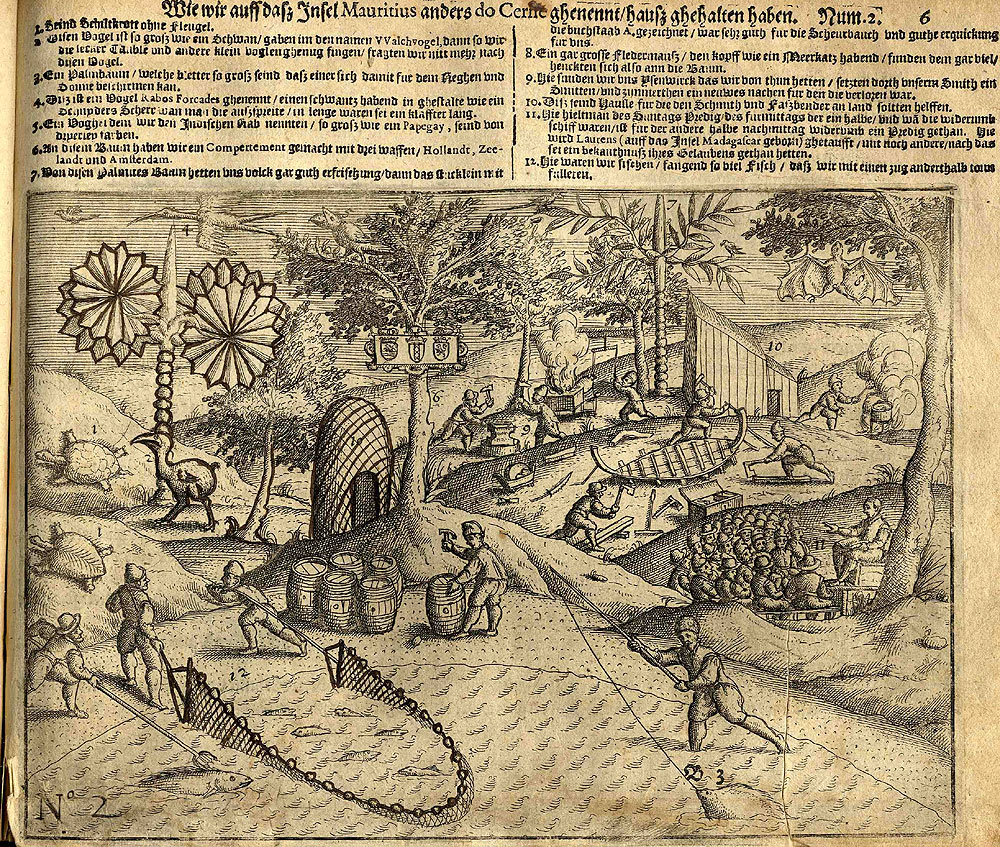 Wie wir auff dasz Insel Mauritius anders do Cerne ghenennt/hausz ghehalten haben. Num. 2. 6
1. Seind Schiltkrott ohne Fleugel.
2. Disen Vogel ist so grosz wie ein Schwan/ gaben im den namen VValchvogel, dann so wir
die lecker Taüble und andere klein voglen ghenug fingen/ fragten wir nitt mehr nach
disen Vogel.
3. Ein Palmbaum/ welche bletter so grosz seind dasz einer sich damit fur dem Reghen vnd
Sonne beschirmen kan.
4. Disz ist ein Vogel Rabos Forcades ghenennt/ einen schwantz habend in ghestalte wie ein
Schnyders Scherr wan man die auffspreite/ in lenge waren sei ein klaffter lang.
5. Ein Voghel dem wir den Indischen Rab nennten/ so grosz wie ein Papegay, seind von
farben.
6. An disem Baum haben wir ein Compertement gemacht mit drei waffen/ Hollandt, Zee-
landt und Amsterdam.
7. Von disen Palmites Baum hetten uns volck gar guth erfrischung/ dann das stucklein mit
die buchstaab A. gezeichnet/ war sehr guth fur die Scheurbauch und guthe erquickung
fur uns.
8. Ein gar grosse Fledermausz/ den kopff wie ein Meerkatz habend/ funden dem gar viel/
henckten sich also ann die Baum.
9. Hie funden wir uns Ysenwerck das wir von thun hetten/ setzten dorth unserm Smith ein
Smitten/ und zimmerthen ein neuwes nachen fur den die verlozen war.
10. Disz seind Hausle fur die den Schmith und Faszbender an land soltten helffen.
11. Hie hielt man des Suntags Predig/ des furmittags der ein halbe/ und wa die widerumb
schiff waren/ ist fur der andere halbe nachmittag widerumb ein Predig gethan. Hie
wird Laurens (auff das Insel Madagascar geborn) ghetaufft/ mit noch andere/ nach das
sei ein bekanthnusz ihres Gelaubens gethan hetten.
12. Hie waren wir fischen/ fangend so viel Fisch/ dasz wir mit einen zug anderthalb tons
fulleren.
4
7
1
10
6
1
11
12
B 3
No 2